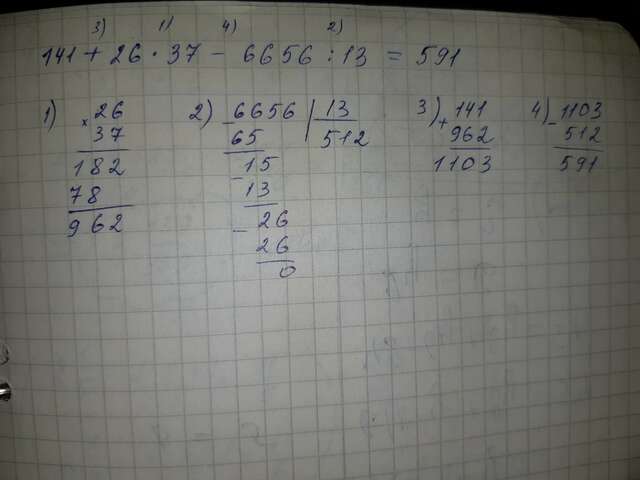 3) 1) 4) 2)
141 + 26 · 37 - 6656 : 13 = 591
1) × 26
37
182
78
962
2) - 6656 | 13
65 512
- 15
13
- 26
26
0
3) + 141
962
1103
4) - 1103
512
591